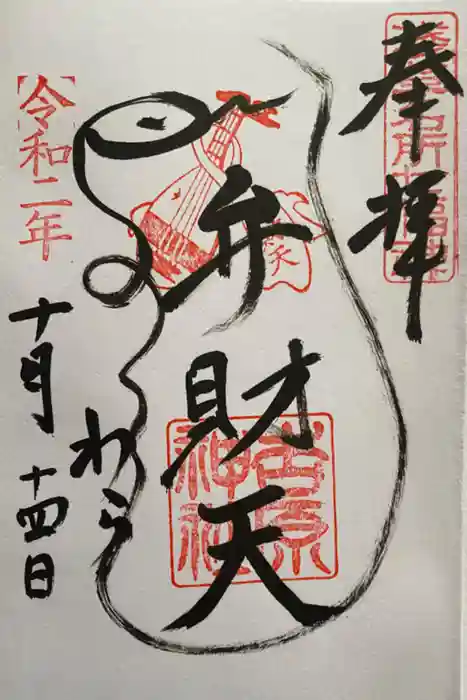 奉拝
弁財天
吉原
神社
わらう
令和二年
十月十四日